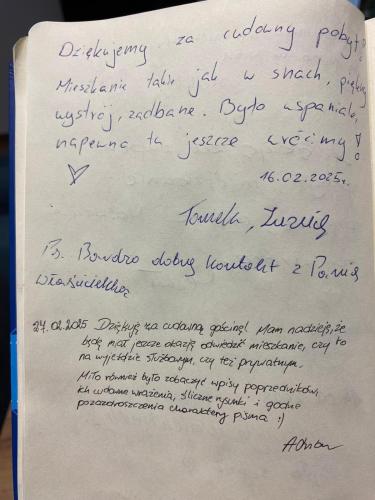 Dziękujemy za cudowny pobyt!
Mieszkanie takie jak w snach, piękny
wystrój, zadbane. Było wspaniale,
napewno tu jeszcze wrócimy!
16.02.2025r.
Ps. Bardzo dobry kontakt z Panią
Właścicielką
27.02.2025 Dziękuję za cudowną gościnę! Mam nadzieję, że
będę miał jeszcze okazję odwiedzić mieszkanie, czy to
na wyjeździe służbowym, czy też prywatnym.
Miło również było zobaczyć wpisy poprzedników,
ich cudowne wrażenia, śliczne rysunki i godne
pozazdroszczenia charaktery pisma :)